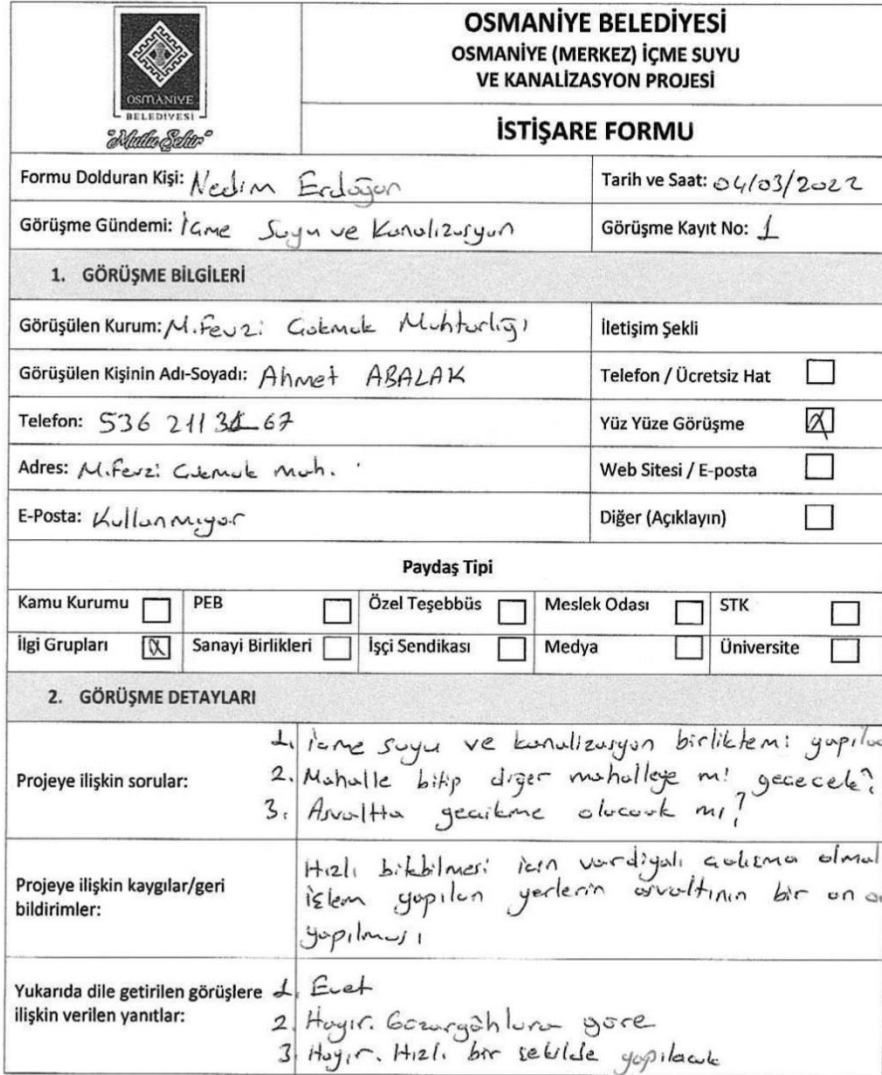 OSMANİYE
BELEDİYESİ
"Mutlu Şehir"
OSMANİYE BELEDİYESİ
OSMANİYE (MERKEZ) İÇME SUYU
VE KANALİZASYON PROJESİ
İSTİŞARE FORMU
Formu Dolduran Kişi: Nedim Erdoğan
Tarih ve Saat: 04/03/2022
Görüşme Gündemi: İçme Suyu ve Kanalizasyon
Görüşme Kayıt No: 1
1. GÖRÜŞME BİLGİLERİ
Görüşülen Kurum: M.Fevzi Çakmak Muhtarlığı
İletişim Şekli
Görüşülen Kişinin Adı-Soyadı: Ahmet ABALAK
Telefon / Ücretsiz Hat
Telefon: 536 211 67
Yüz Yüze Görüşme
Adres: M.Fevzi Çakmak Mah.
Web Sitesi / E-posta
E-Posta: Kullanmıyor
Diğer (Açıklayın)
Paydaş Tipi
Kamu Kurumu PEB Özel Teşebbüs Meslek Odası STK
İlgi Grupları Sanayi Birlikleri İşçi Sendikası Medya Üniversite
2. GÖRÜŞME DETAYLARI
Projeye ilişkin sorular:
1. İçme suyu ve kanalizasyon birliktemi yapılac
2. Mahalle bitip diğer mahalleye mi geçecek?
3. Asvaltta gecikme olacak mı?
Projeye ilişkin kaygılar/geri
bildirimler:
Hızlı bitebilmesi için vardiyalı çalışma olmal
işlem yapılan yerlerin asvaltının bir an
yapılması
Yukarıda dile getirilen görüşlere
ilişkin verilen yanıtlar:
1. Evet
2. Hayır. Güzargahlara göre
3. Hayır. Hızlı bir şekilde yapılacak